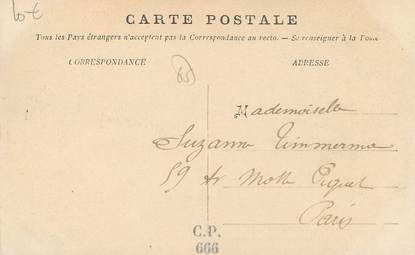 10 €
CARTE POSTALE
Tous les Pays étrangers n'acceptent pas la Correspondance au recto. — Se renseigner à la Poste
CORRESPONDANCE
85
ADRESSE
Mademoiselle
Suzanne Timmerma
59 Av Motte Piquet
Paris
C.P.
666